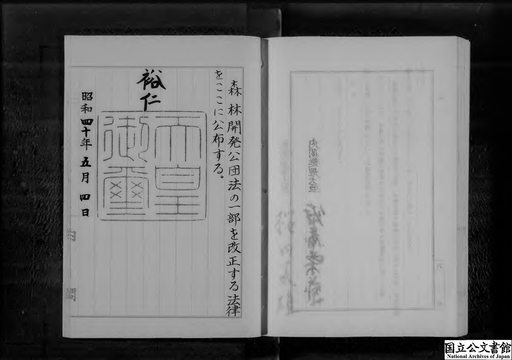 森林開発公団法の一部を改正する法律
をここに公布する。
裕仁
天皇
御璽
昭和四十年五月四日
国立公文書館
National Archives of Japan